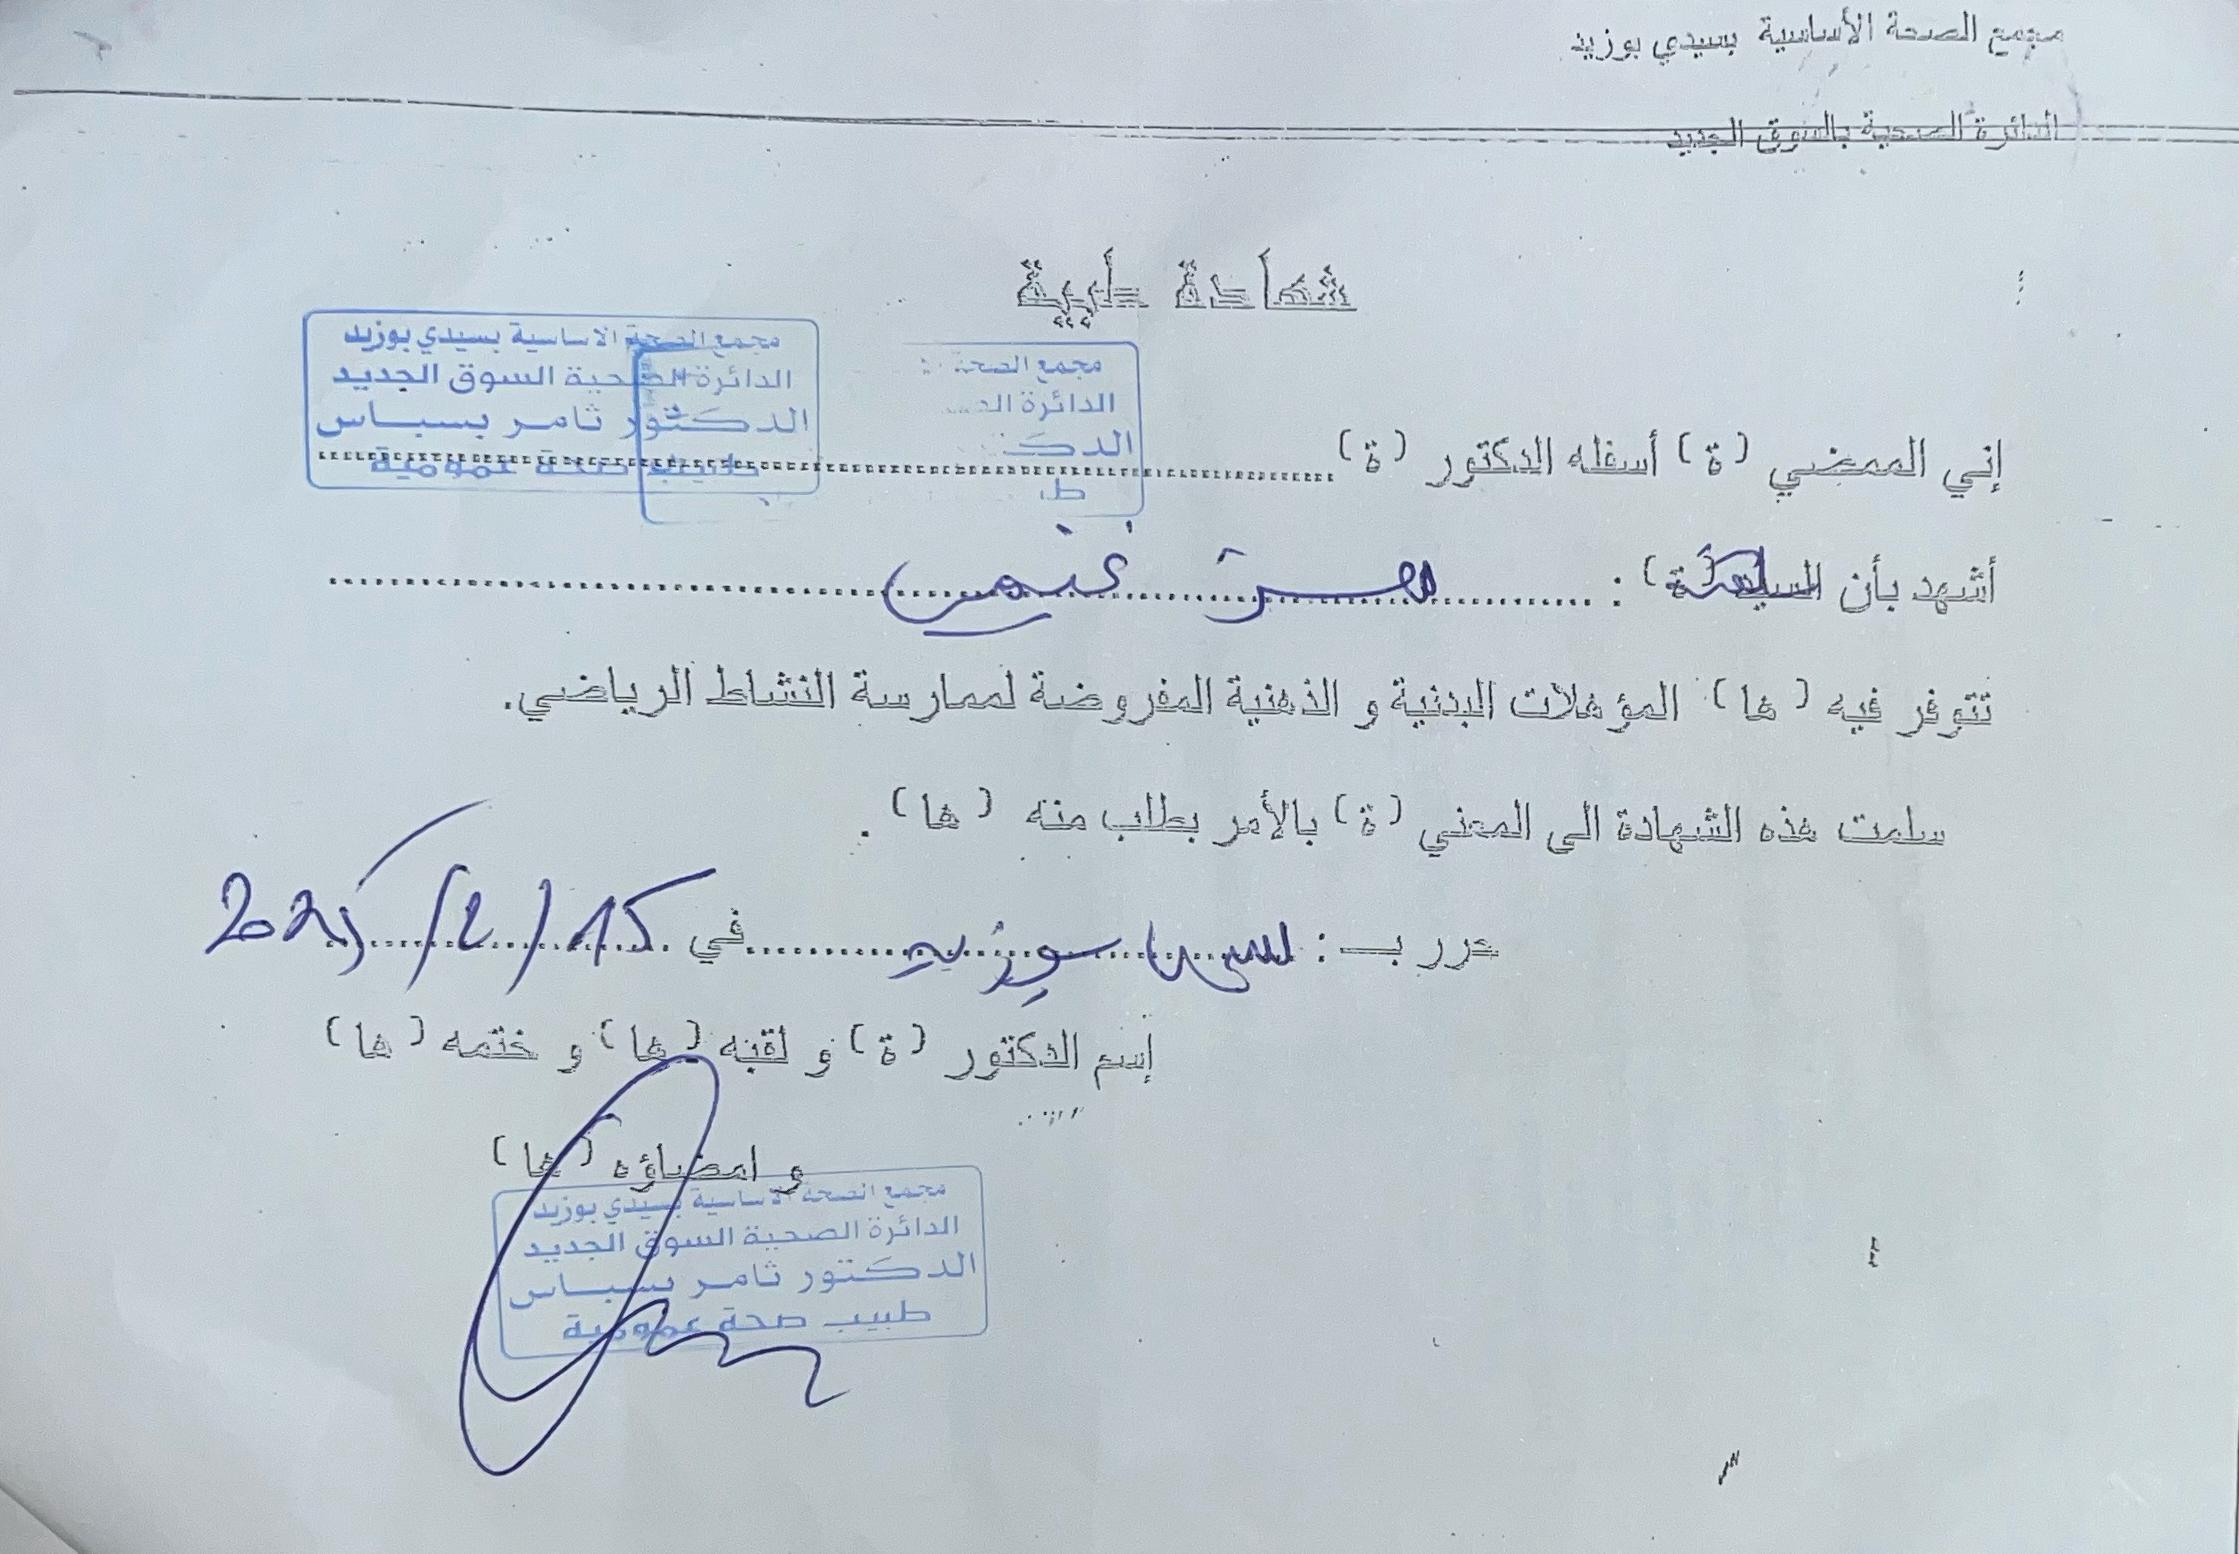 مجمع الصحة الأساسية بسيدي بوزيد
الدائرة الصحية بالسوق الجديد
شهادة طبية
مجمع الصحة الاساسية بسيدي بوزيد
الدائرة الصحية السوق الجديد
الدكتور ثامر بسباس
طبيب صحة عمومية
مجمع الصحة
الدائرة
إني الممضي (ة) أسفله الدكتور (ة)
أشهد بأن :
تتوفر فيه (ها) المؤهلات البدنية و الذهنية المفروضة لممارسة النشاط الرياضي.
سلمت هذه الشهادة الى المعني (ة) بالأمر بطلب منه (ها) .
حرر بـ : سيدي بوزيد في 15/2/2025
إسم الدكتور (ة) و لقبه (ها) و ختمه (ها)
و امضاؤه (ها)
مجمع الصحة الاساسية بسيدي بوزيد
الدائرة الصحية السوق الجديد
الدكتور ثامر بسباس
طبيب صحة عمومية